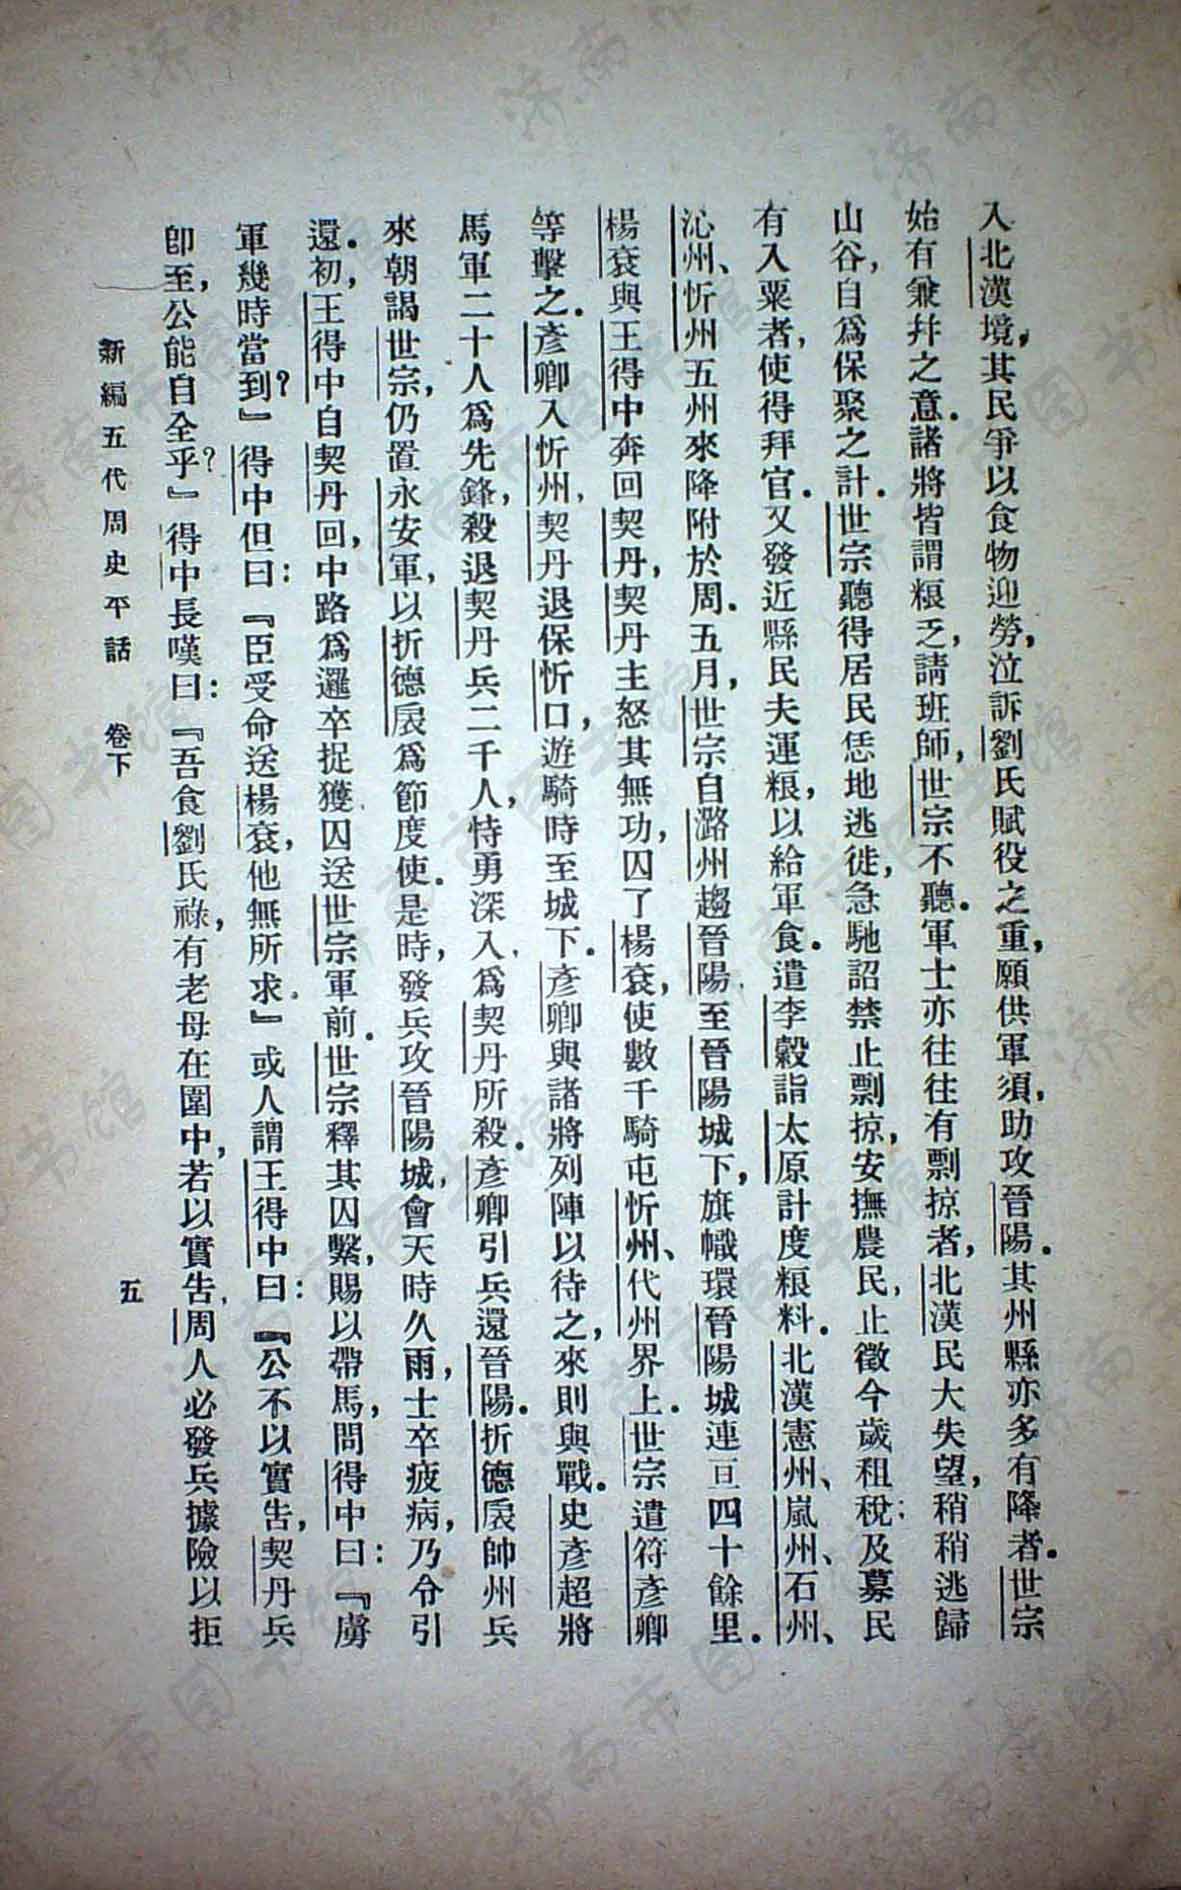 入北漢境，其民爭以食物迎勞，泣訴劉氏賦役之重，願供軍須，助攻晉陽．其州縣亦多有降者．世宗
始有兼幷之意．諸將皆謂粮乏，請班師，世宗不聽．軍士亦往往有剽掠者，北漢民大失望，稍稍逃歸
山谷，自爲保聚之計．世宗聽得居民恁地逃徙，急馳詔禁止剽掠，安撫農民，止徵今歲租稅；及募民
有入粟者，使得拜官．又發近縣民夫運粮，以給軍食．遣李穀詣太原計度粮料．北漢憲州、嵐州、石州、
沁州、忻州五州來降附於周．五月，世宗自潞州趨晉陽．至晉陽城下，旗幟環晉陽城連亘四十餘里．
楊袞與王得中奔回契丹，契丹主怒其無功，囚了楊袞，使數千騎屯忻州、代州界上．世宗遣符彥卿
等擊之．彥卿入忻州，契丹退保忻口，遊騎時至城下．彥卿與諸將列陣以待之，來則與戰．史彥超將
馬軍二十人爲先鋒，殺退契丹兵二千人，恃勇深入，爲契丹所殺．彥卿引兵還晉陽．折德扆帥州兵
來朝謁世宗，仍置永安軍，以折德扆爲節度使．是時，發兵攻晉陽城，會天時久雨，士卒疲病，乃令引
還．初，王得中自契丹回，中路爲邏卒捉獲，囚送世宗軍前．世宗釋其囚繫，賜以帶馬，問得中曰：『虜
軍幾時當到？』得中但曰：『臣受命送楊袞，他無所求．』或人謂王得中曰：『公不以實吿，契丹兵
卽至，公能自全乎？』得中長嘆曰：『吾食劉氏祿，有老母在圍中，若以實吿，周人必發兵據險以拒
新編五代周史平話　卷下　五
济南市图书馆